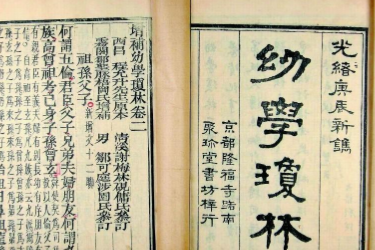 光緒庚辰新鐫
幼學瓊林
京都隆福寺路南
聚珍堂書坊梓行
增補幼學瓊林卷二
西昌 程允升登吉原本
清溪謝梅林硯傭氏參訂
霧閣鄒聖脈梧岡氏增補
男 鄒可庭涉園氏參訂
祖孫父子
新增文十二聯
何謂五倫君臣父子兄弟夫婦朋友何謂九
族高曾祖考己身子孫曾玄